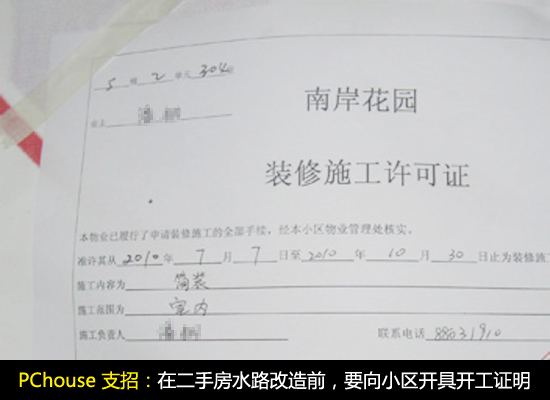 5 幢 2 单元 304
业主
南岸花园
装修施工许可证
本物业已履行了申请装修施工的全部手续，经本小区物业管理处核实，
准许其从 2010 年 7 月 7 日至 2010 年 10 月 30 日止为装修施工
施工内容为 简装
施工范围为 室内
施工负责人 联系电话 88031910
PChouse 支招：在二手房水路改造前，要向小区开具开工证明